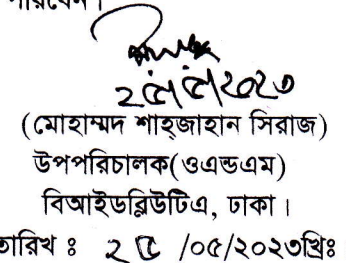 ২৫/৫/২০২৩
(মোহাম্মদ শাহ্জাহান সিরাজ)
উপপরিচালক(ওএন্ডএম)
বিআইডব্লিউটিএ, ঢাকা।
তারিখ ঃ ২৫ /০৫/২০২৩খ্রিঃ